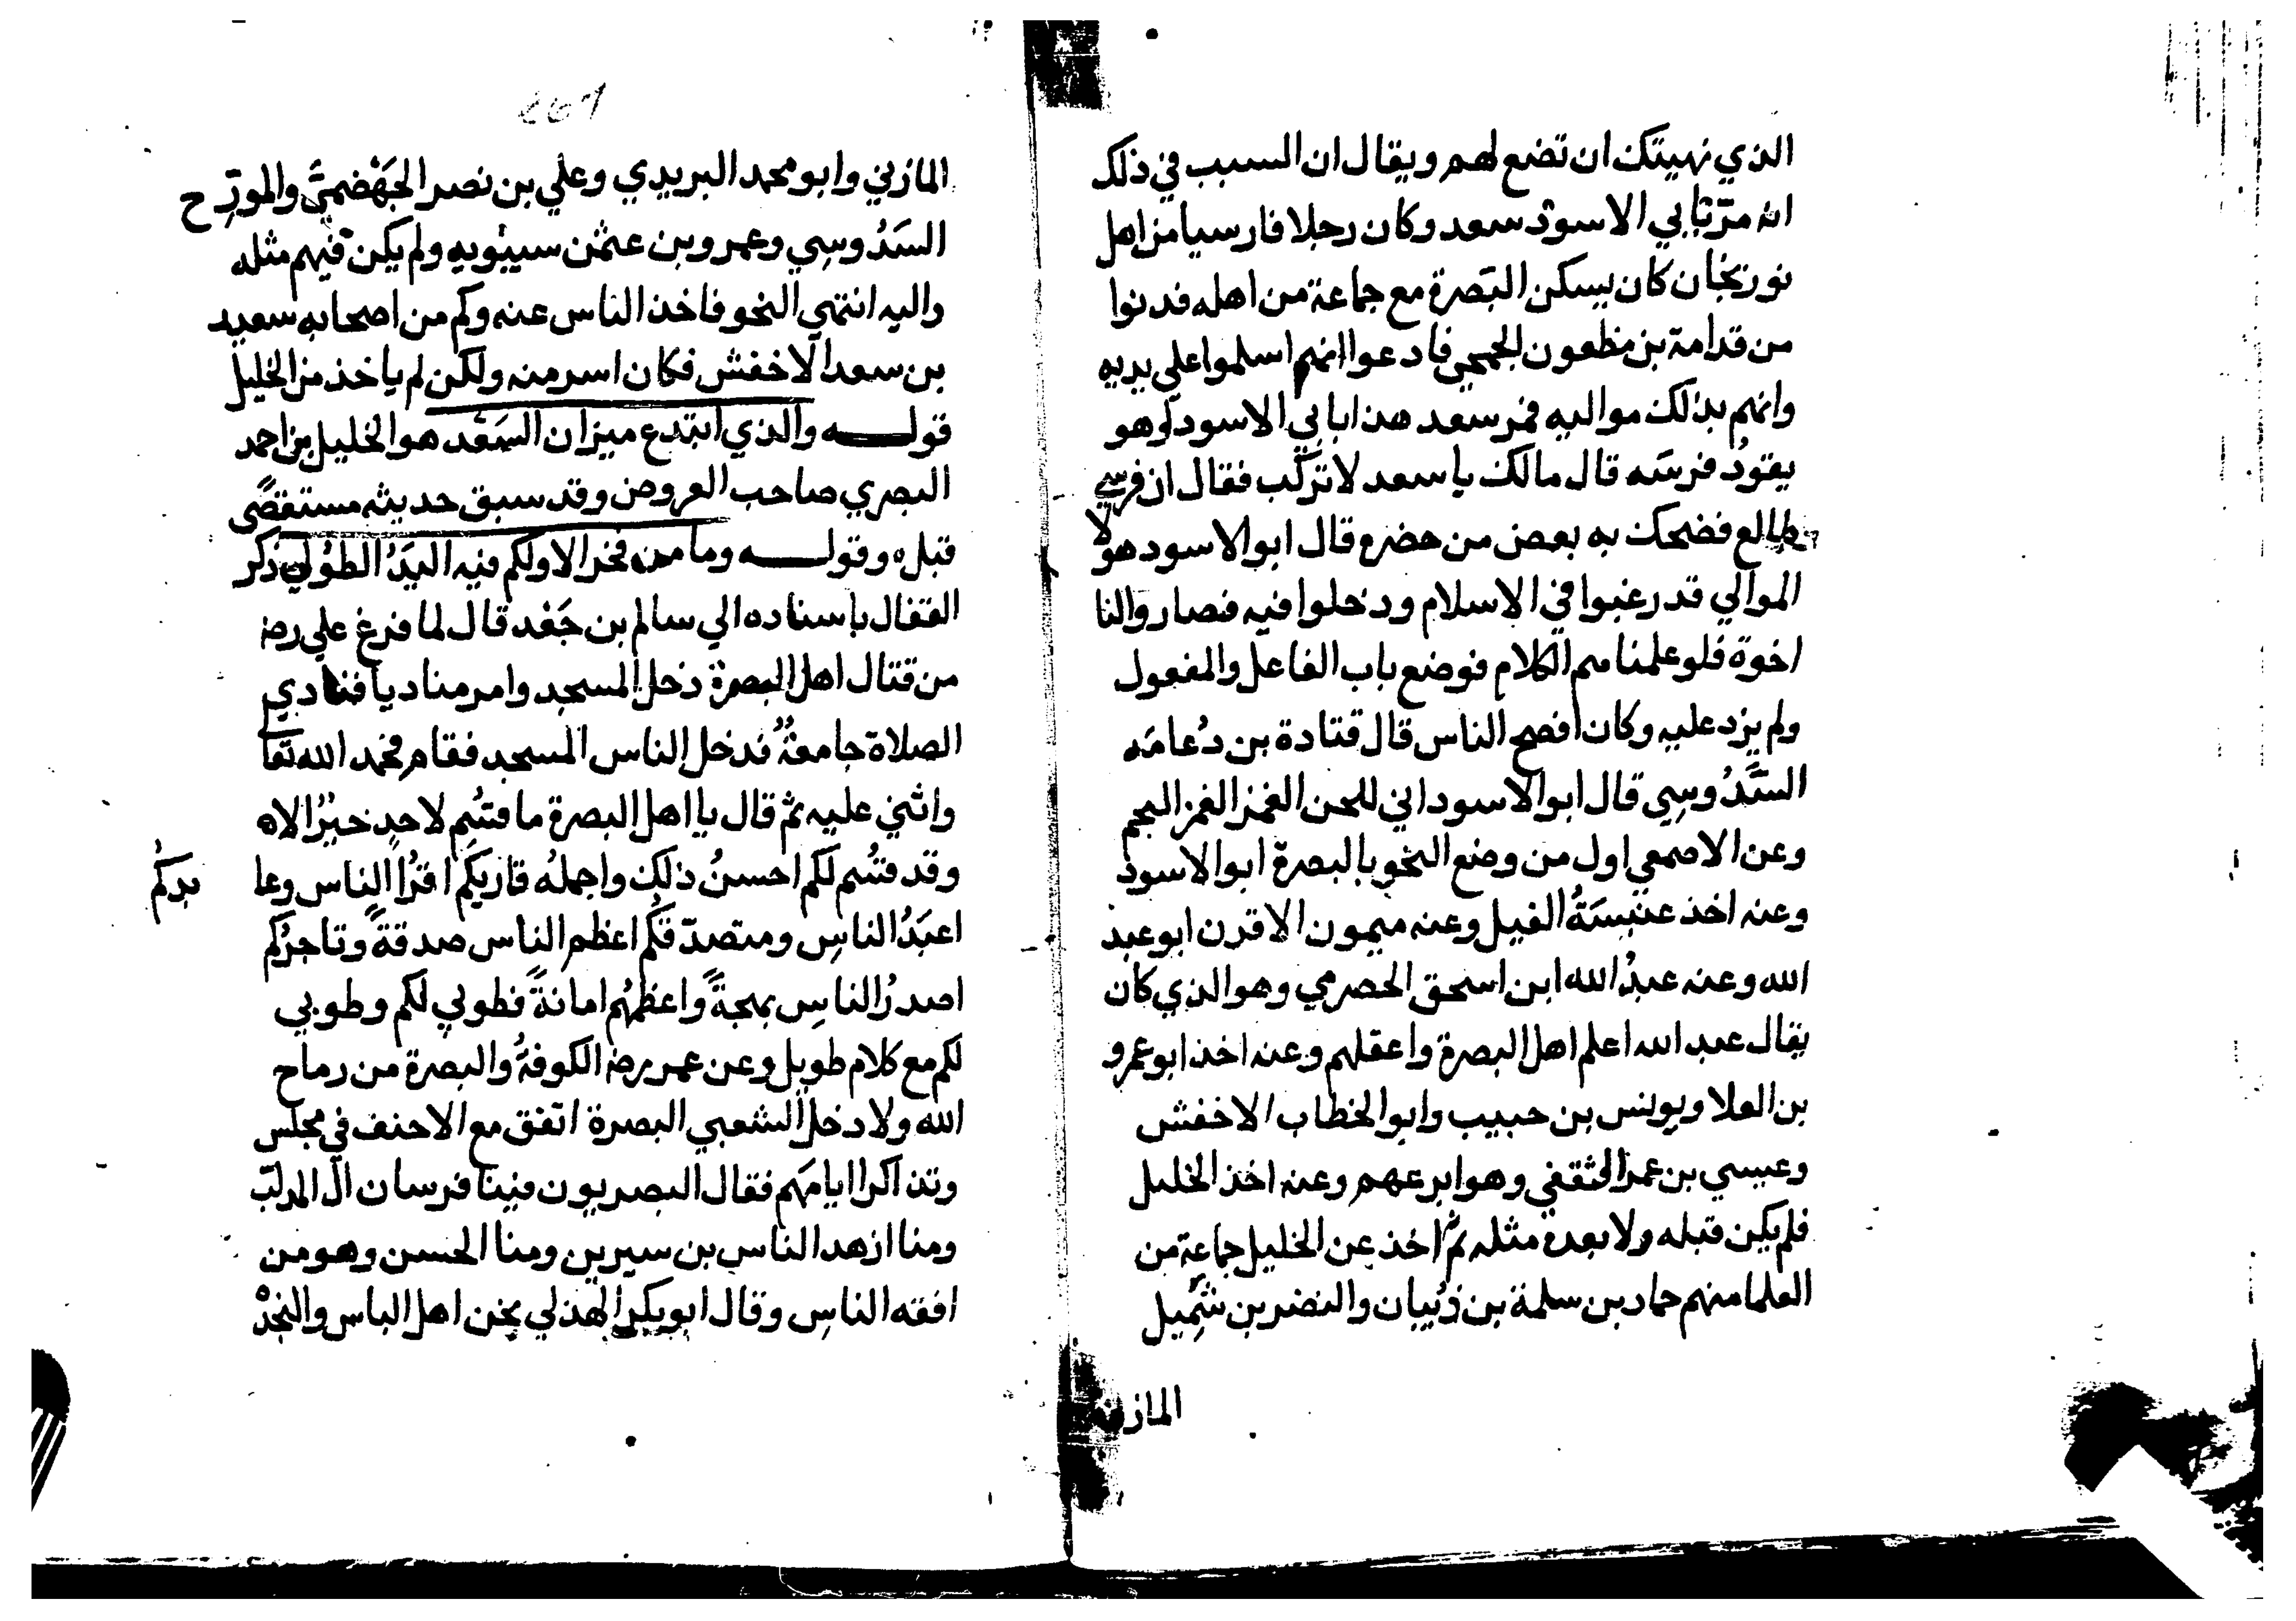 الذي نهيتك ان تضع لهم ويقال ان السبب في ذلك
انه مرّ بابي الاسود سعد وكان رجلا فارسيا من اهل
نوزنجان كان يسكن البصرة مع جماعة من اهله فدنوا
من قدامة بن مظعون الجمحي فادعوا انهم اسلموا علي يديه
وانهم بذلك مواليه فمر سعد هذا بابي الاسود وهو
يقودُ فرسَه قال مالك يا سعد لا تركب فقال ان فرسي
ظالع فضحك به بعض من حضره قال ابو الاسود هولا
الموالي قد رغبوا في الاسلام ودخلوا فيه فصاروا لنا
اخوة فلو علمناهم الكلام فوضع باب الفاعل والمفعول
ولم يزد عليه وكان افصح الناس قال قتادة بن دُعامَه
السَّدُوسِي قال ابو الاسود اني للحن الغمز الغمز اللحم
وعن الاصمعي اول من وضع النحو بالبصرة ابو الاسود
وعنه اخذ عنبسَةُ الفيل وعنه ميمون الاقرن ابو عبد
الله وعنه عبدُ الله ابن اسحق الحضرمي وهو الذي كان
يقال عبد الله اعلم اهل البصرة واعقلهم وعنه اخذ ابو عمرو
بن العلا ويونس بن حبيب وابو الخطاب الاخفش
وعيسي بن عمر الثقفي وهو ابرعهم وعنه اخذ الخليل
فلم يكن قبله ولا بعده مثله ثمّ اخذ عن الخليل جماعة من
العلما منهم حماد بن سلمة بن ذبيان والنضر بن شُمِيل
المازني
المازني وابو محمد اليزيدي وعلي بن نصر الجَهْضميّ والمورّج
السَدُوسِي وعمرو بن عثمن سيبويه ولم يكن فيهم مثله
واليه انتهي النحو فاخذ الناس عنه وكم من اصحابه سعيد
بن سعد الاخفش فكان اسر منه ولكن لم ياخذ من الخليل
قوله والذي ابتدع ميزان السَعْد هو الخليل بن احمد
البصري صاحب العروض وقد سبق حديثه مستقصًى
قبله وقوله وما من فخر الا ولكم فيه اليَدُ الطُولي ذكر
القفال باسناده الي سالم بن جَعْد قال لما فرغ علي رضه
من قتال اهل البصرة دخل المسجد وامر مناديا فنادي
الصلاة جامعةٌ فدخل الناس المسجد فقام فحمد الله تعا
واثني عليه ثم قال يا اهل البصرة ما قسُم لاحدٍ خيرُ الاه
وقد قسُم لكم احسنُ ذلك واجملُه قاريكم اقرُا الناس وعا
بدكُم
اعبَدُ الناس ومتصدّقكم اعظم الناس صدقةً وتاجرُكم
اصدرُ الناسِ بمجةً واعظمُهم امانةً فطوبي لكم وطوبي
لكم مع كلام طويل وعن عمر رضه الكوفةُ والبصرة من رماح
الله ولا دخل الشعبي البصرة اتفق مع الاحنف في مجلس
وتذاكرا ايامَهم فقال البصريون فينا فرسان آل المهلّب
ومنا ازهد الناس بن سيرين ومنا الحسن وهو من
افقه الناسِ وقال ابو بكر الهذلي نحن اهل الباس والنجدْ